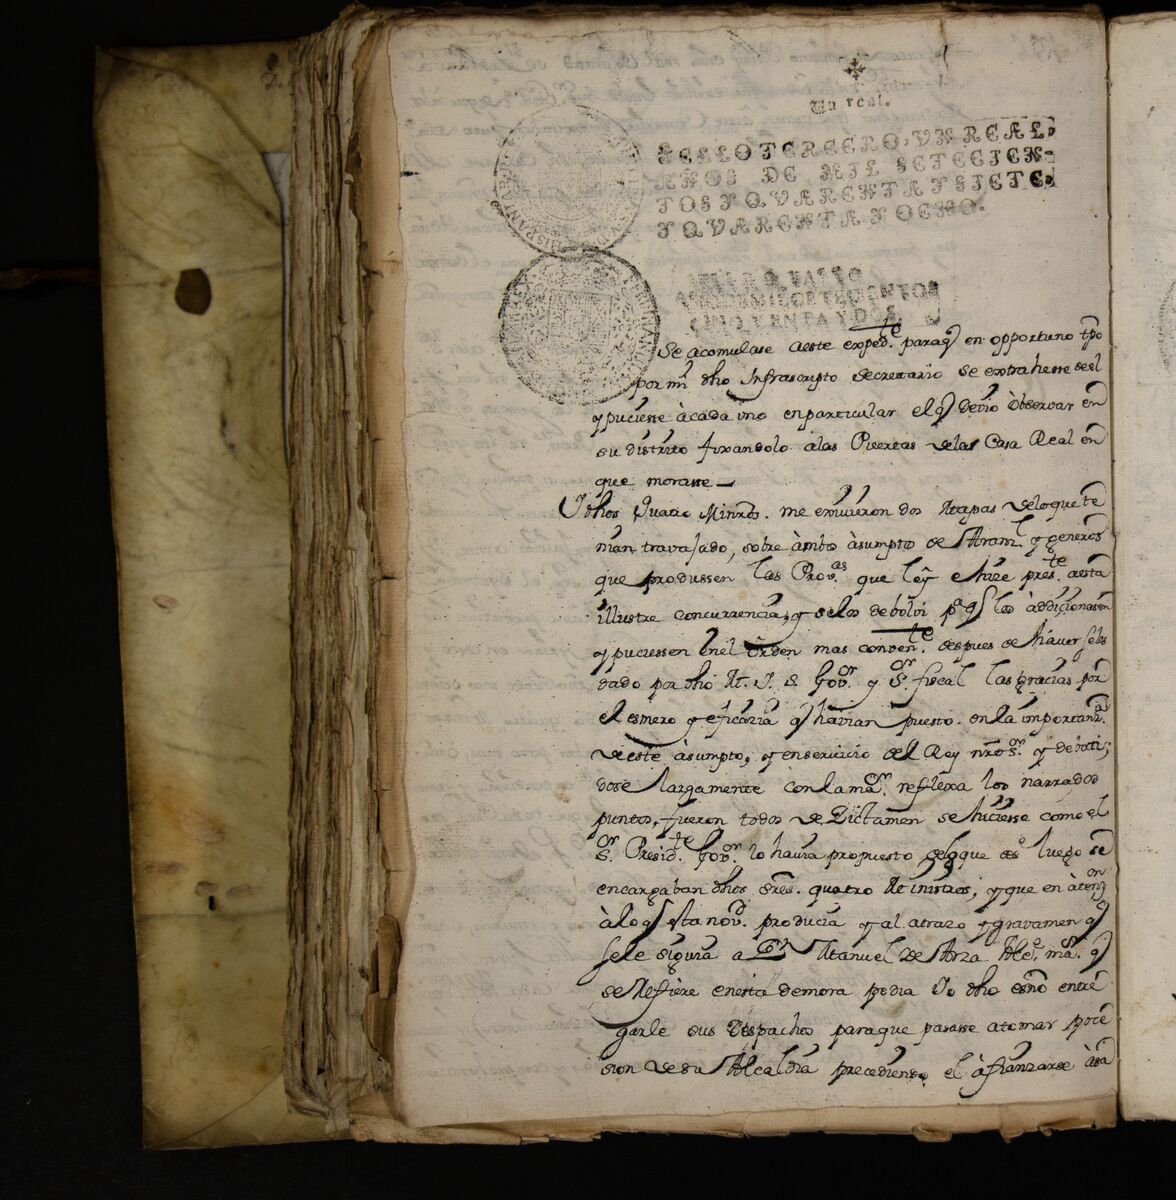 Un real.
SELLO TERCERO, VN REAL,
AÑOS DE MIL SETECIEN-
TOS Y QVARENTA Y SIETE,
Y QVARENTA Y OCHO.
CINQVENTA Y DOS
Se acomulase aeste exped.te paraq̃ en opportuno tp̃o
por mi dho Infrascripto Secrettario se extrahesse de el
y puciesse à cada uno enparticular el q̃ devio òbservar en
su distrito fixandolo alas Puertas delas Casa Real en
que morasse—
Y dhos Quatro Minr̃os. me exivieron dos Mapas deloque te
nian travajado, sobre àmbos àsumptos de Aranl. y generos
que produssen las Prov.as que leỹ e hize pres.te aesta
illustre concurrencia, y selos debolvi p.a q̃ los àddicionasen
y puciessen en el òrden mas conven.te despues de haverseles
dado por dho M. Y. S. Gov.or y S.or fiscal las gracias por
el esmero y eficazia q̃ havian puesto en la importanz.a
de este àsumpto, y enservicio del Rey nr̃o S.or y debati;
dose largamente con la ma.or reflexa los narrados
puntos, fueron todos de Dictamen se hiciesse como el
S.or Presid.te Gov.or lo havia propuesto deloque des.e luego se
encargaban dhos Sres. quatro Ministros, y que en àtenz.on
àlo q̃ esta nov.d producia y al atrazo y gravamen q̃
sele seguia a D.n Manuel De Arza Alc.e ma.or q̃
se Refiere enesta demora podia Yo dho essno entre
garle sus Despachos paraque pasasse atomar poce
sion de su Alcaldia precediendo el àfianzarse àsa